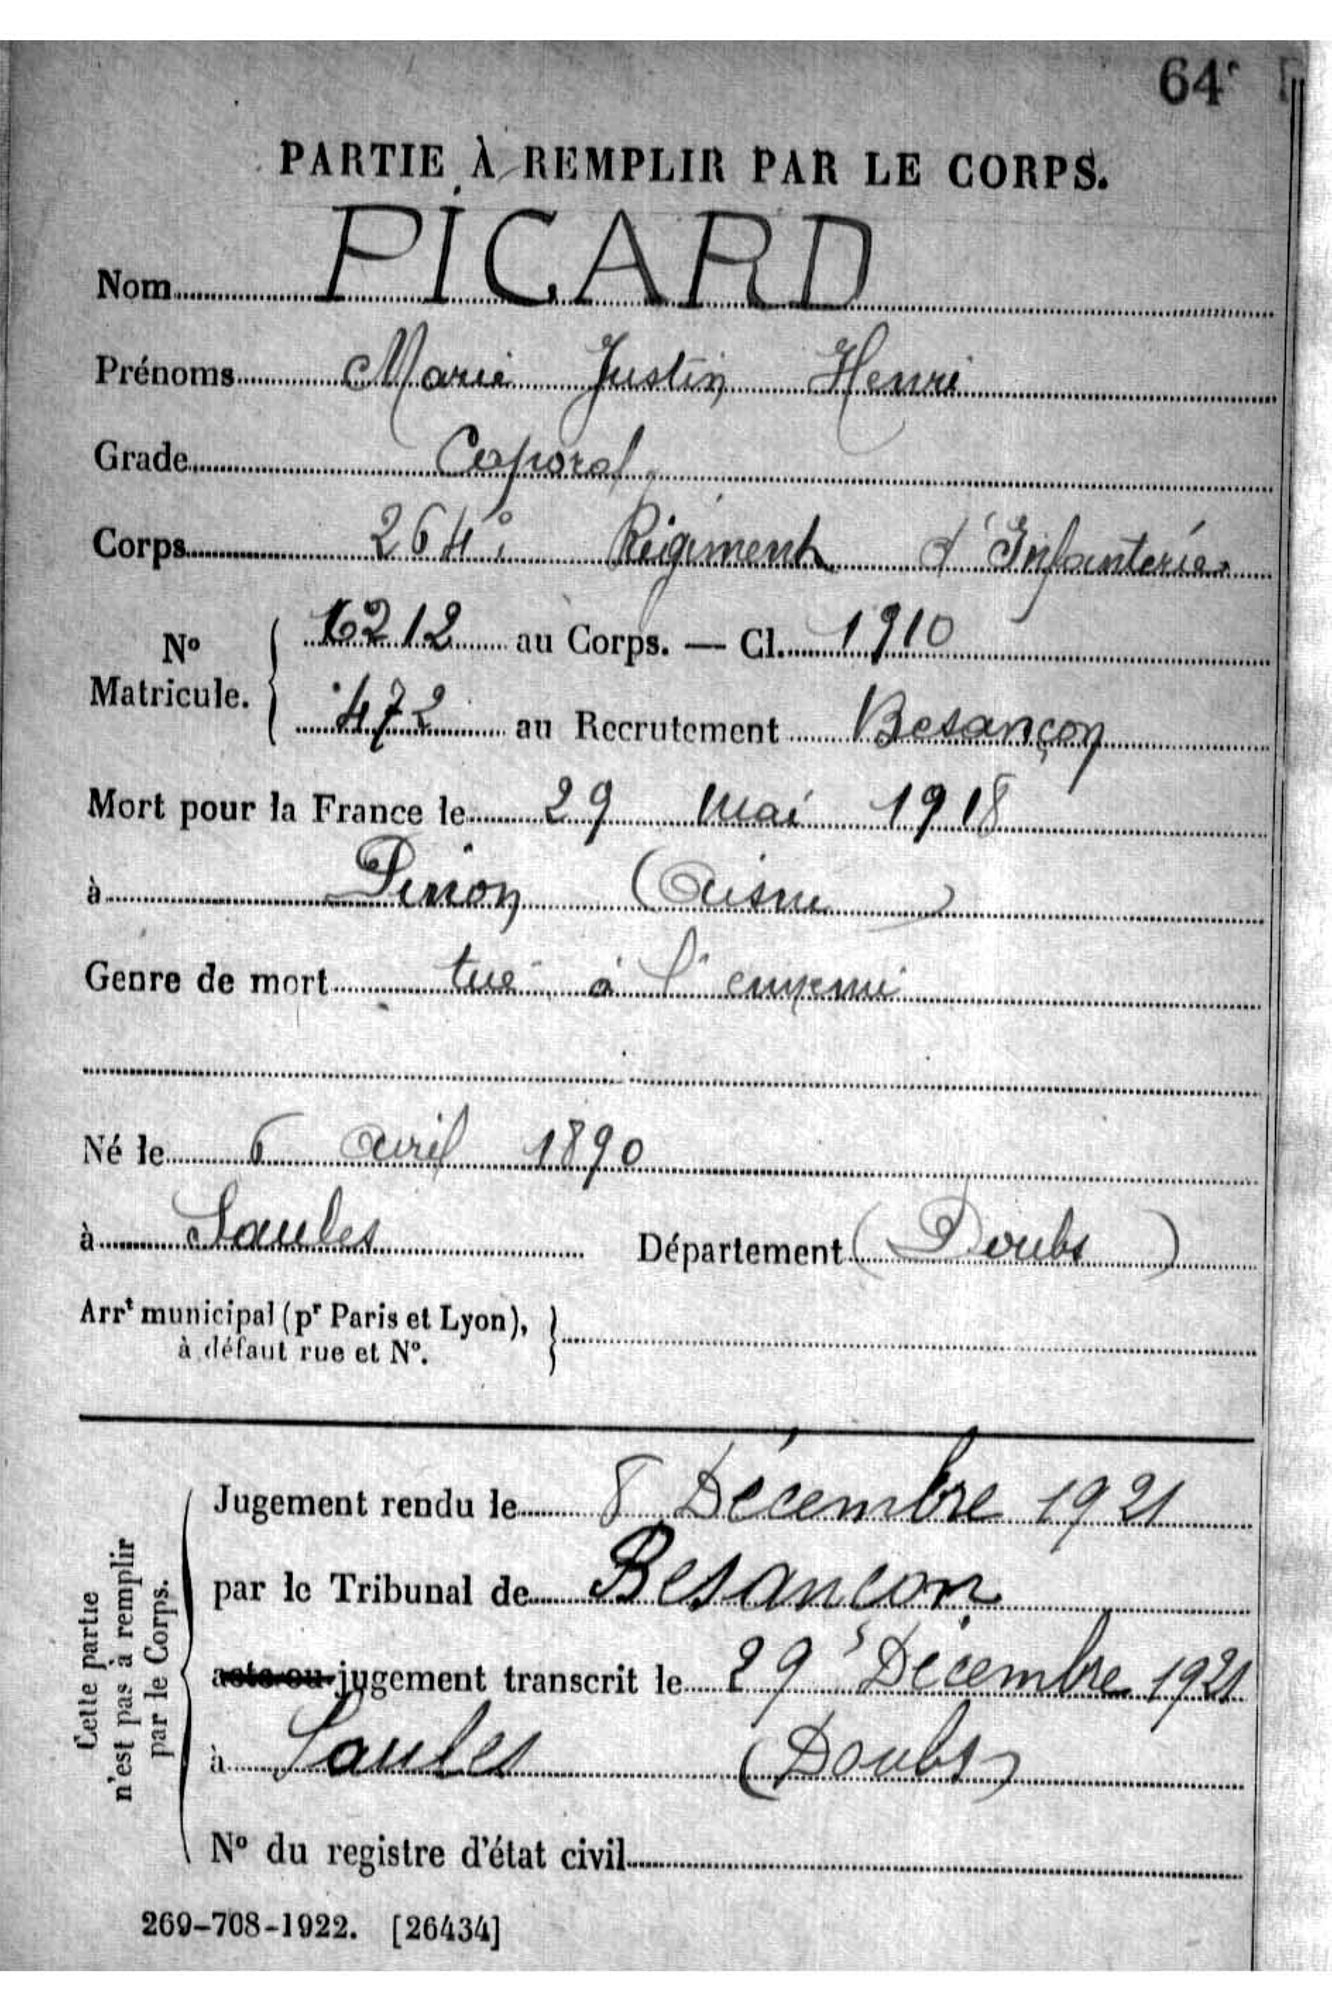 64
PARTIE À REMPLIR PAR LE CORPS.
Nom PICARD
Prénoms Marie Justin Henri
Grade Caporal
Corps 264e Régiment d'Infanterie
No Matricule. { 6212 au Corps. — Cl. 1910
472 au Recrutement Besançon
Mort pour la France le 29 mai 1918
à Pinon (Aisne)
Genre de mort tué à l'ennemi
Né le 6 Avril 1890
à Saules Département (Doubs)
Arrt municipal (pr Paris et Lyon), }
à défaut rue et No.
Cette partie
n'est pas à remplir
par le Corps.
Jugement rendu le 8 Décembre 1921
par le Tribunal de Besançon
acte ou jugement transcrit le 29 Décembre 1921
à Saules (Doubs)
No du registre d'état civil
269-708-1922. [26434]